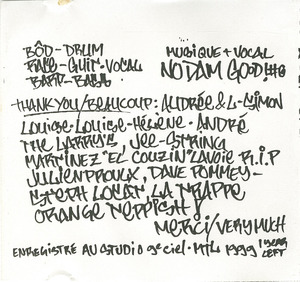 BÔD-DRUM
RAG-GUIT-VOCAL
BARR-BASS
MUSIQUE + VOCAL
NO DAM GOOD!#@
THANK YOU/BEAUCOUP: AUDRÉE & L-SIMON
LOUISE-LOUISE-HÉLÈNE-ANDRÉ
THE LARRY'S, JEE-STRING
MARTINEZ "EL COUZIN" LAVOIE R.I.P
JULIEN PROULX, DAVE POMMEY-
STEPH LOCAT, LA TRAPPE
ORANGE NEPPICH!
MERCI/VERY MUCH
ENREGISTRÉ AU STUDIO 9e CIEL-MTL 1999 1 YEAR LEFT